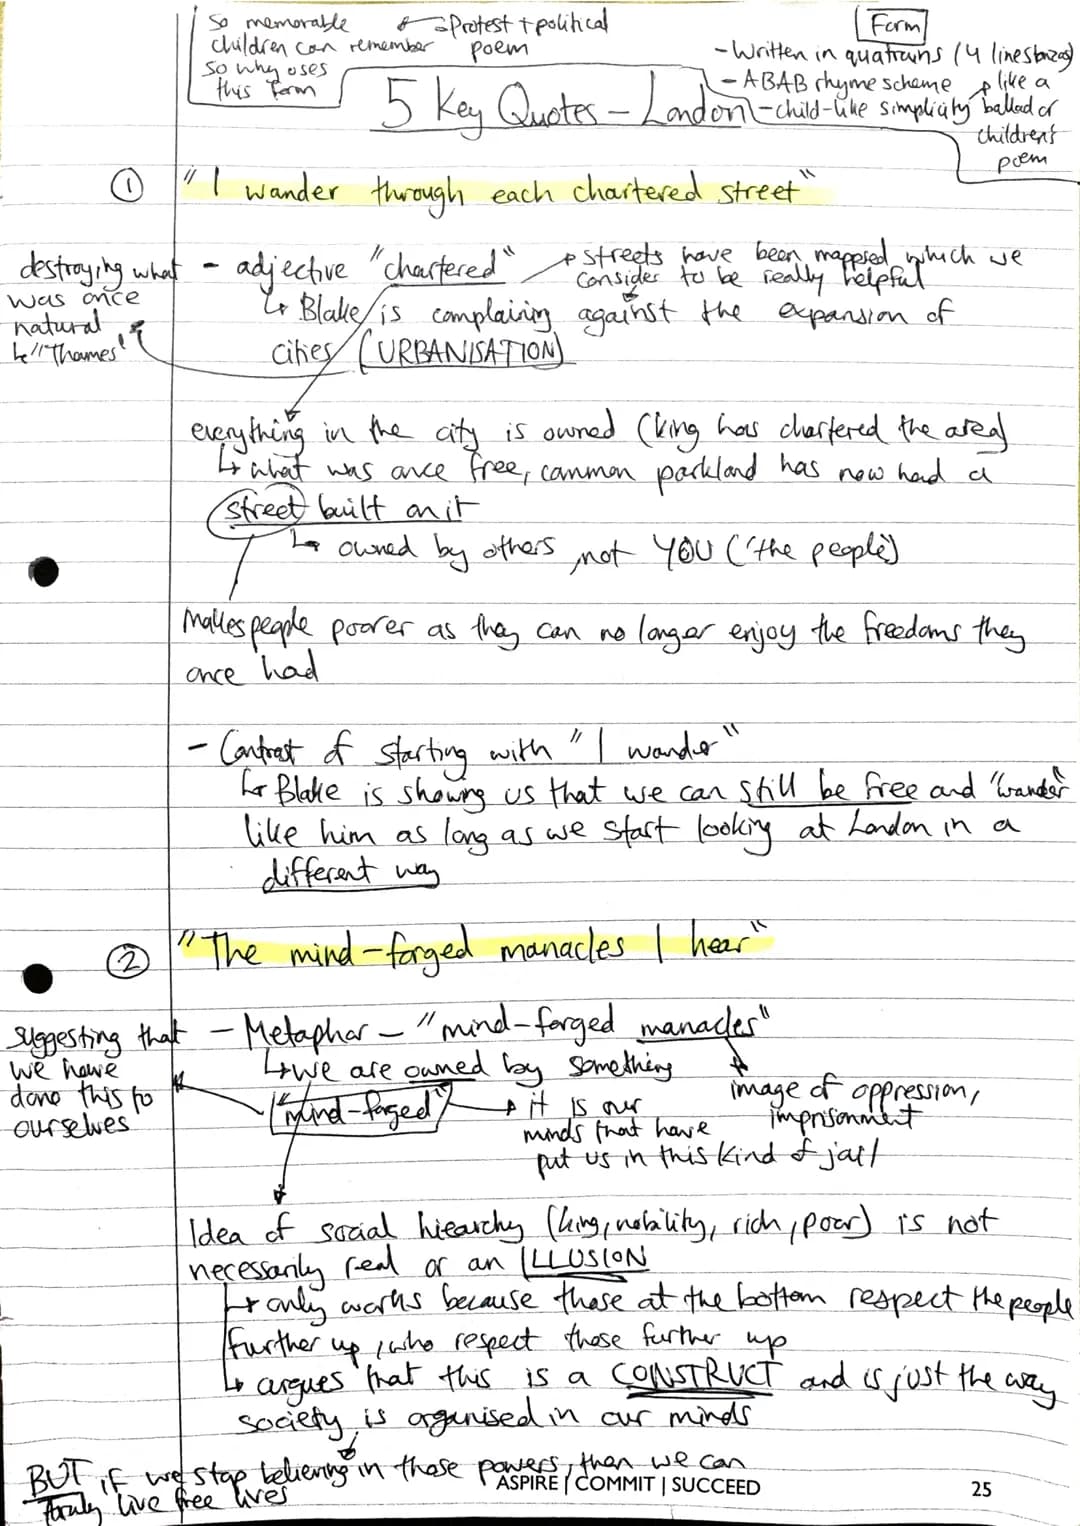 So memorable
children can remember
so why uses
this form
Protest + political
poem
Form
- Written in quatrains (4 line stanzas)
- ABAB rhyme scheme
- child-like simplicity
like a
ballad or
children's
poem
5 Key Quotes - London
① "I wander through each chartered street"
- adjective "chartered"
streets have been mapped which we
consider to be really helpful
↳ Blake is complaining against the expansion of
cities (URBANISATION)
destroying what
was once
natural
"Thames"
everything in the city is owned (king has chartered the area)
↳ what was once free, common parkland has now had a
street built on it
↳ owned by others, not YOU ('the people')
Makes people poorer as they can no longer enjoy the freedoms they
once had
- Contrast of starting with "I wander"
↳ Blake is showing us that we can still be free and "wander"
like him as long as we start looking at London in a
different way
② "The mind-forged manacles I hear"
- Metaphor - "mind-forged manacles"
↳ we are owned by something
image of oppression,
imprisonment
"mind-forged"
it is our
minds that have
put us in this kind of jail
suggesting that
we have
done this to
ourselves
Idea of social hiearchy (king, nobility, rich, poor) is not
necessarily real or an ILLUSION
↳ only works because those at the bottom respect the people
further up, who respect those further up
↳ argues that this is a CONSTRUCT and is just the way
society is organised in our minds
BUT if we stop believing in those powers, then we can
live free lives
ASPIRE | COMMIT | SUCCEED
25